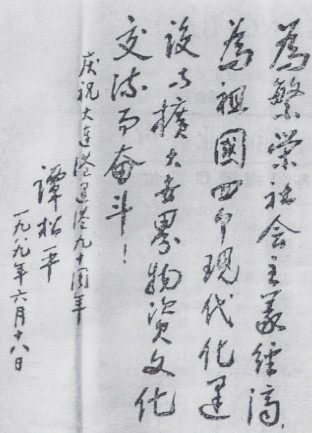 為繁荣社会主義经濟
為祖國四个現代化建
設与擴大世界物资文化
交流而奋斗！
庆祝大连港建港九十周年
譚松平
一九八九年六月十八日